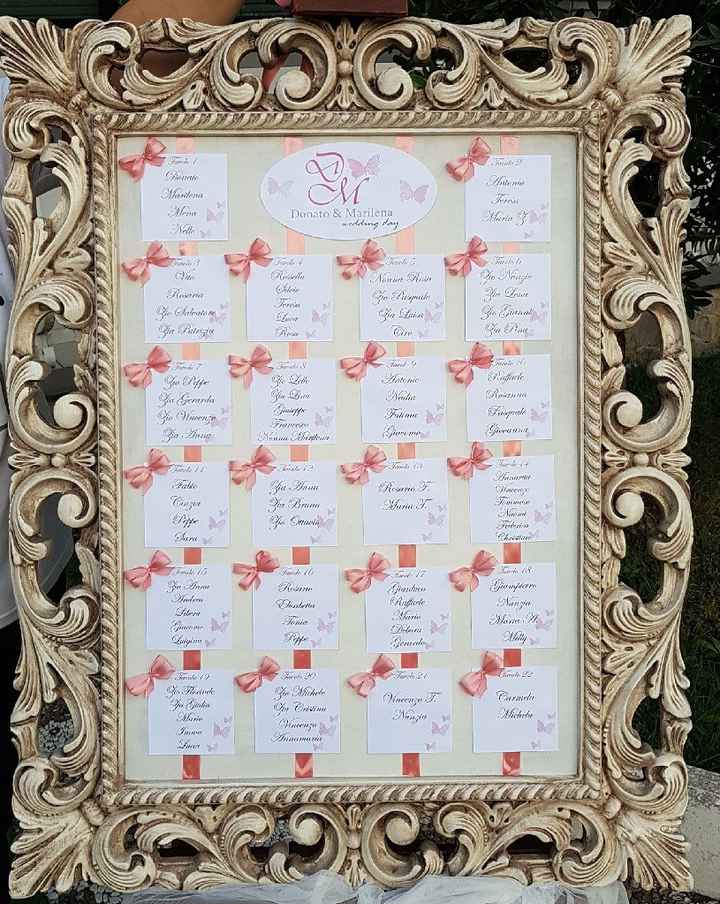 Tavolo 1
Donato
Marilena
Mena
Nello
D M
Donato & Marilena
wedding day
Tavolo 2
Antonio
Teresa
Maria
Tavolo 3
Vito
Rosaria
Zio Salvatore
Zia Patrizia
Tavolo 4
Rosella
Silvio
Teresa
Luca
Rosa
Tavolo 5
Nonna Rosa
Zio Pasquale
Zia Luisa
Ciro
Tavolo 6
Zio Nunzio
Zia Lena
Zio Gianni
Zia Pina
Tavolo 7
Zio Peppe
Zia Gerarda
Zio Vincenzo
Zia Anna
Tavolo 8
Zio Lello
Zia Lina
Giuseppe
Francesco
Nonna
Tavolo 9
Antonio
Nadia
Fatima
Giacomo
Tavolo 10
Raffaele
Rosanna
Pasquale
Giovanna
Tavolo 11
Fabio
Cinzia
Peppe
Sara
Tavolo 12
Zia Anna
Zia Bruna
Zio Ottavio
Tavolo 13
Rosario F.
Maria F.
Tavolo 14
Annarita
Vincenzo
Tommaso
Naomi
Federica
Christian
Tavolo 15
Zia Anna
Andrea
Libera
Giacomo
Luigina
Tavolo 16
Rosario
Elisabetta
Tonia
Peppe
Tavolo 17
Gianluca
Raffaele
Mario
Debora
Gerardo
Tavolo 18
Giampiero
Nunzia
Maria A.
Milly
Tavolo 19
Zio Florindo
Zia Giulia
Mario
Imma
Luca
Tavolo 20
Zio Michele
Zia Cristina
Vincenzo
Annamaria
Tavolo 21
Vincenzo T.
Nunzia
Tavolo 22
Carmela
Michela